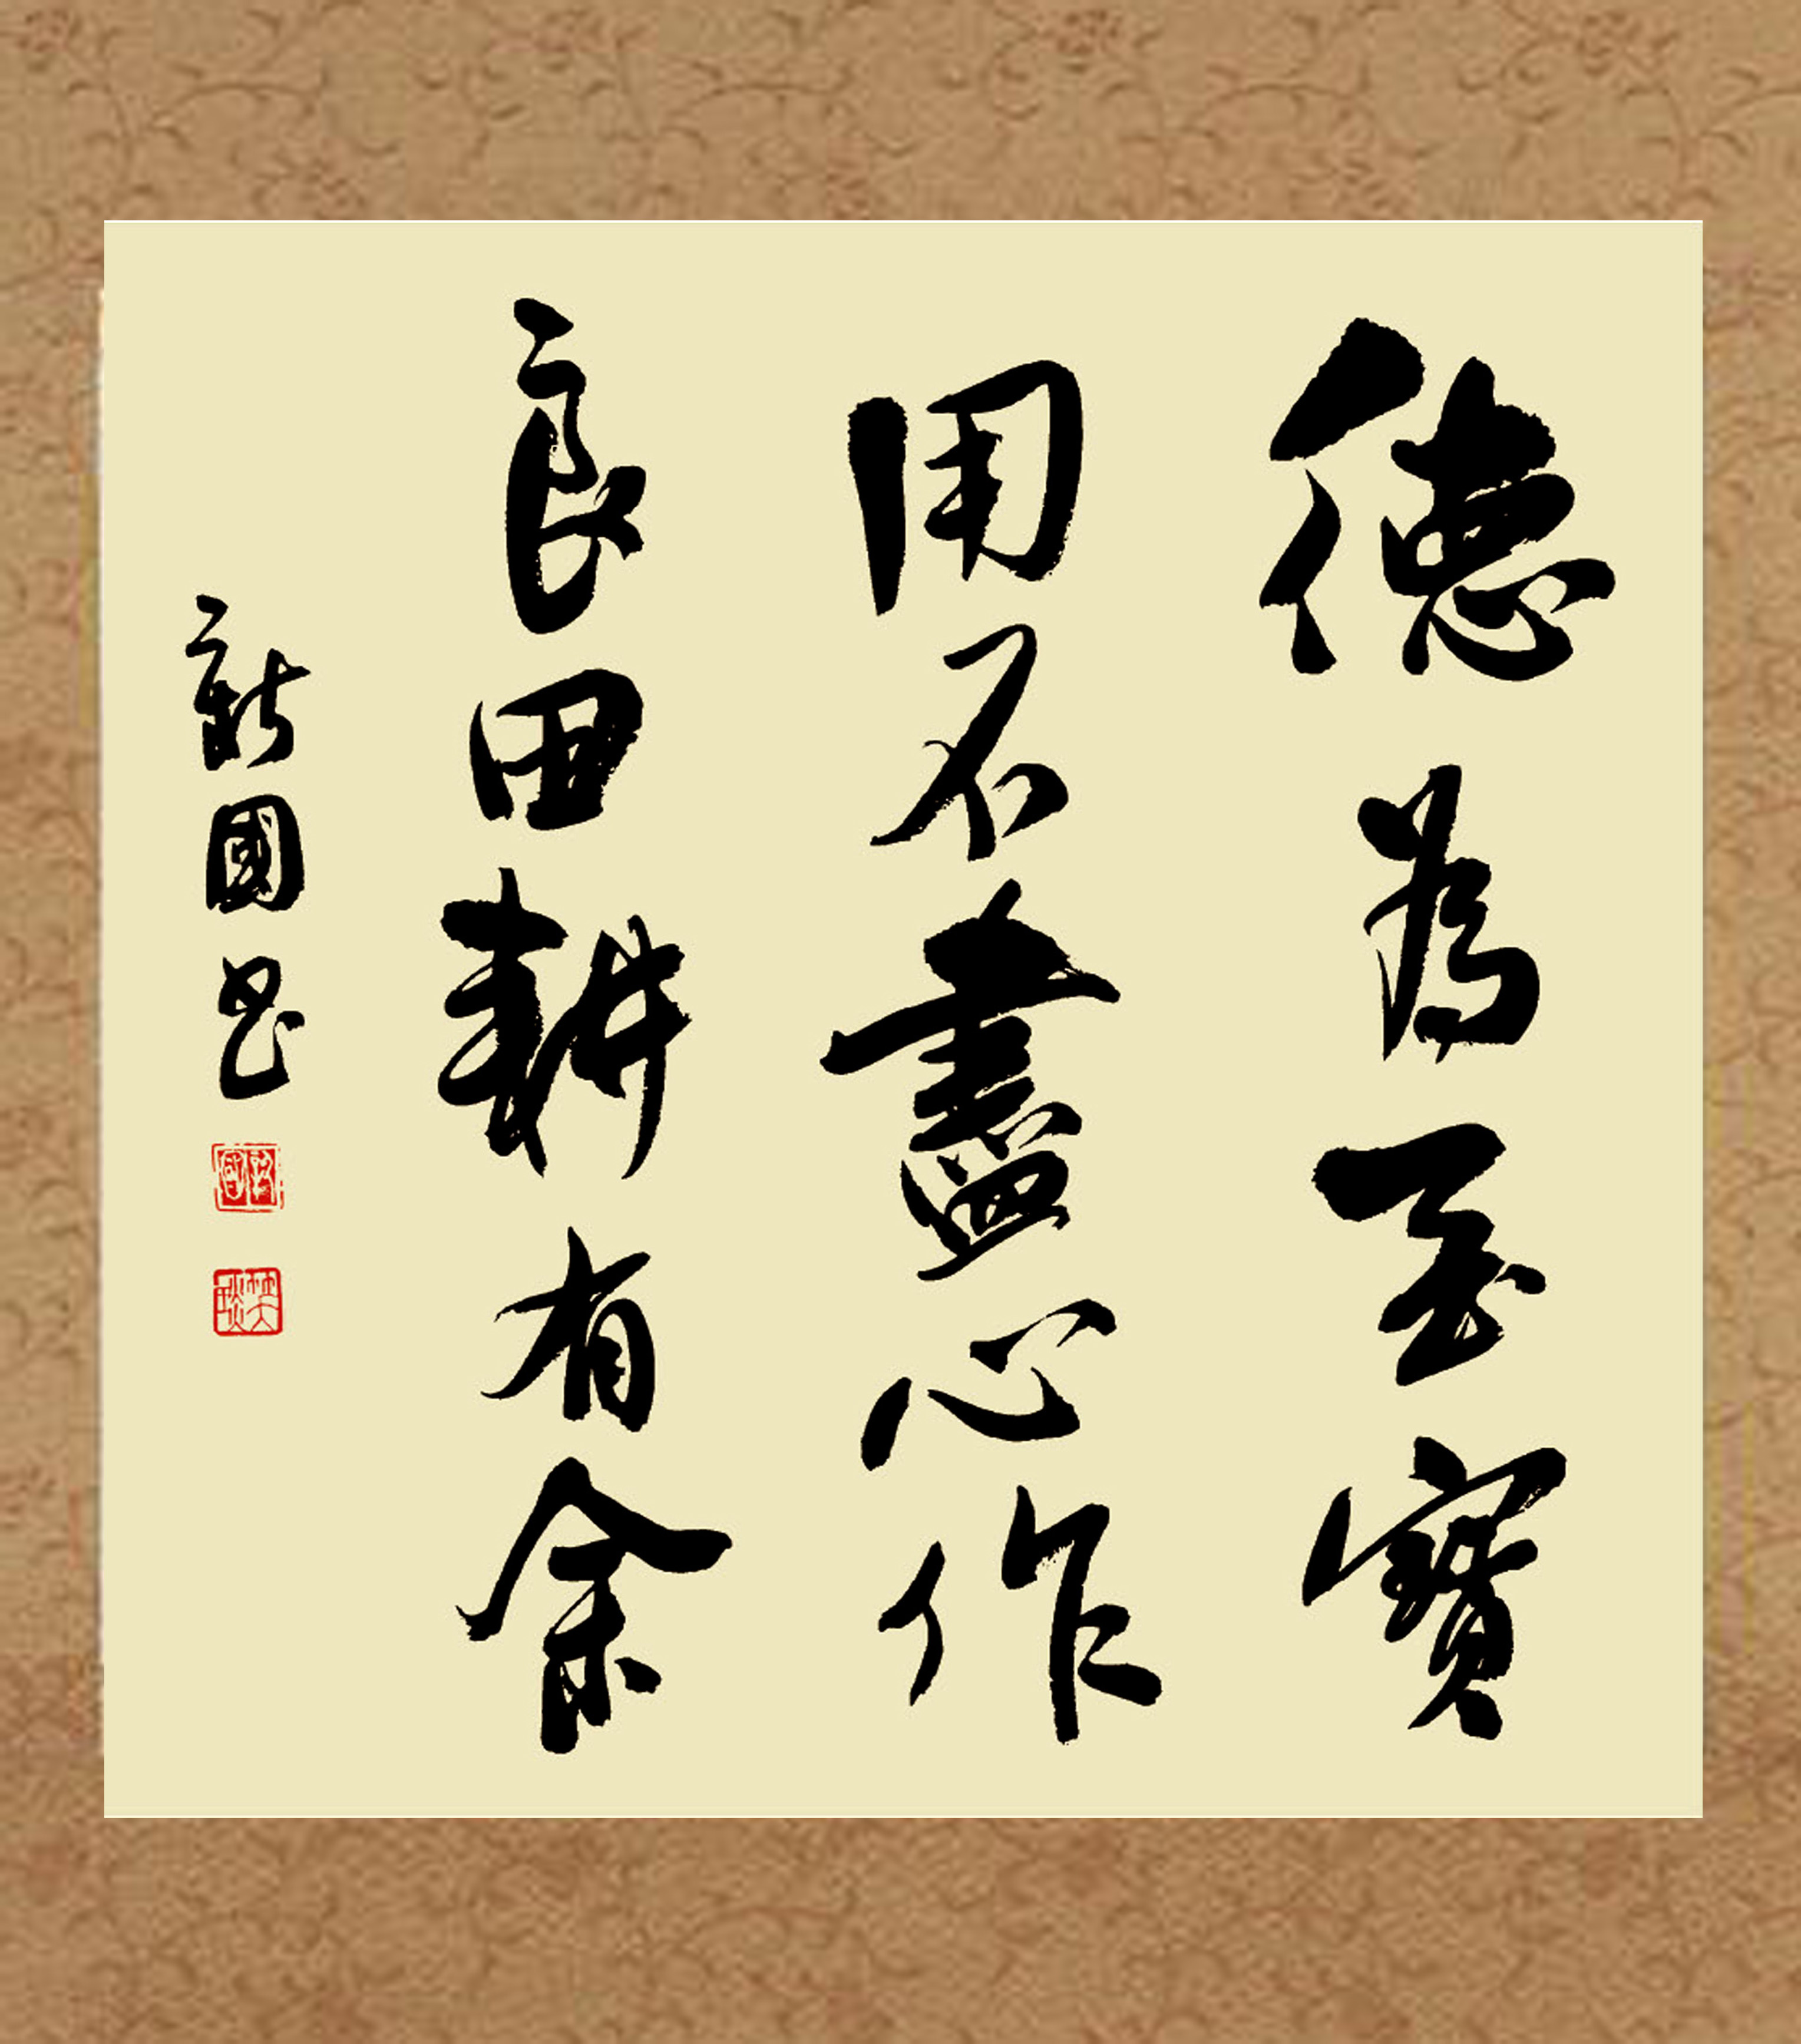 德為至寶
用不盡心作
良田耕有餘
新國書